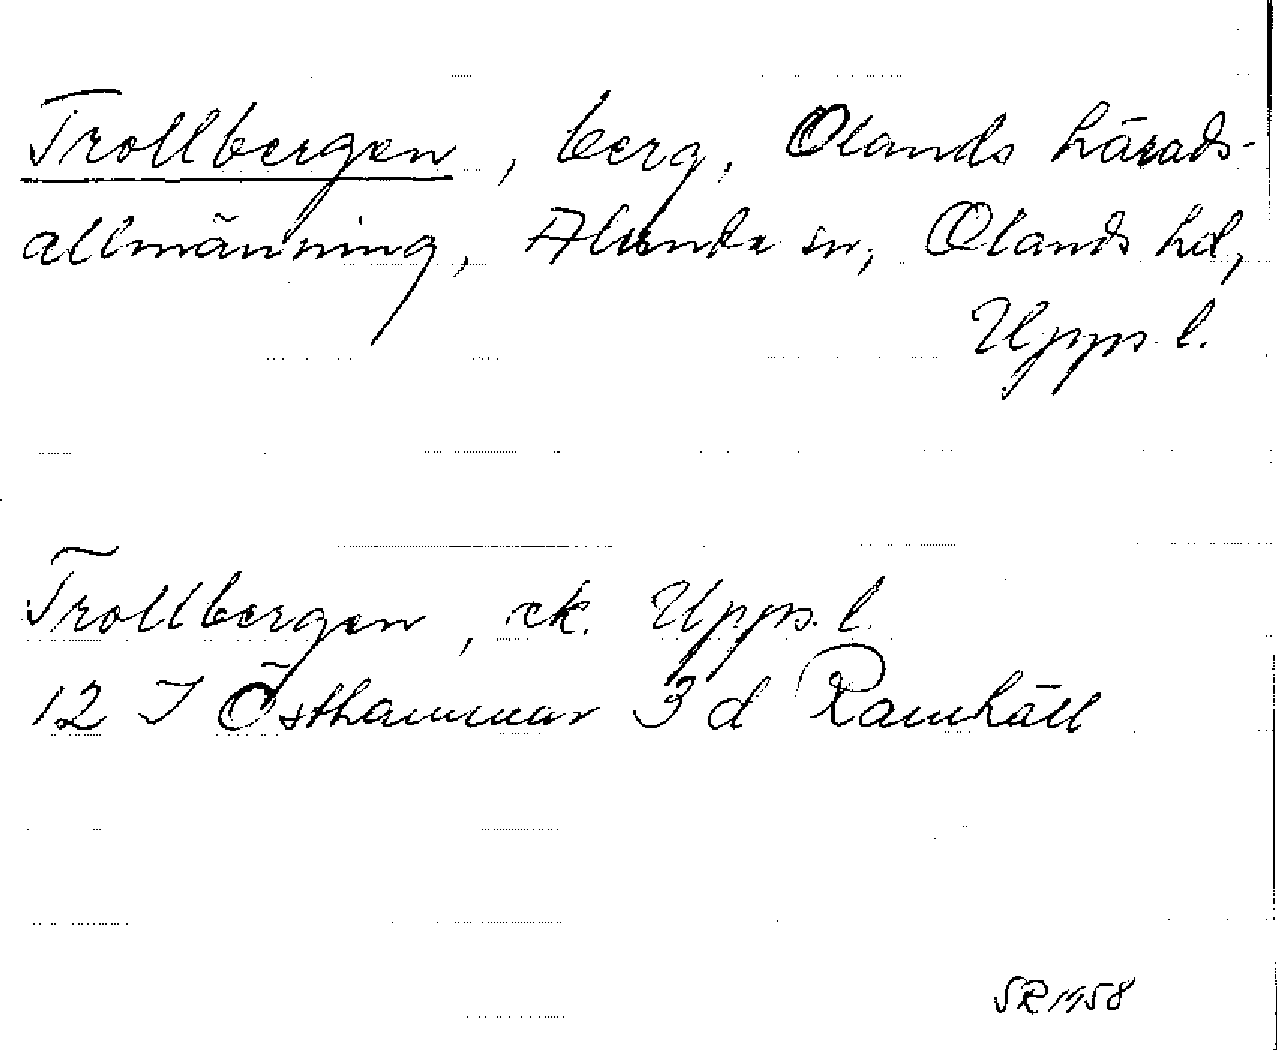 Trollbergen, berg, Olands härads-
allmänning, Alunda sn, Olands hd,
Upps. l.
Trollbergen, ek. Upps. l.
12 I Östhammar 3 d Ramhäll
SR 1958